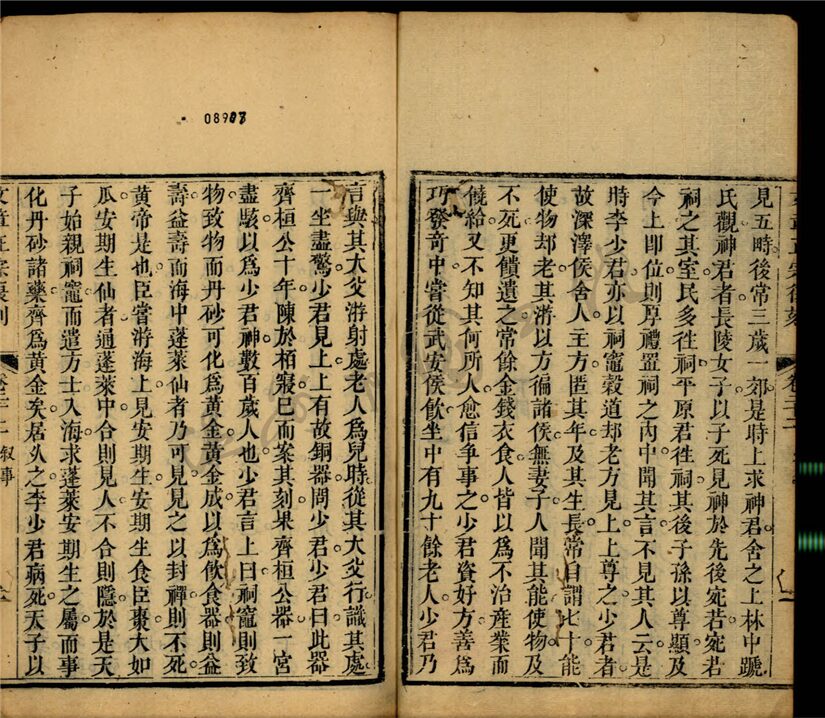 見五時後常三歲一郊是時上求神君舍之上林中蹏
氏觀神君者長陵女子以子死見神於先後宛若宛若
祠之其室民多徃祠平原君徃祠其後子孫以尊顯及
今上即位則厚禮置祠之內中聞其言不見其人云是
時李少君亦以祠竈穀道却老方見上上尊之少君者
故深澤侯舍人主方匿其年及其生長常自謂七十能
使物却老其游以方徧諸侯無妻子人聞其能使物及
不死更饋遺之常餘金錢衣食人皆以爲不治産業而
饒給又不知其何所人愈信爭事之少君資好方善爲
巧發竒中嘗從武安侯飲坐中有九十餘老人少君乃
言與其大父游射處老人爲兒時從其大父行識其處
一坐盡驚少君見上上有故銅器問少君少君曰此器
齊桓公十年陳於栢寢已而案其刻果齊桓公器一宮
盡駭以爲少君神數百歲人也少君言上曰祠竈則致
物致物而丹砂可化爲黃金黃金成以爲飲食器則益
壽益壽而海中蓬萊仙者乃可見見之以封禪則不死
黃帝是也臣嘗游海上見安期生安期生食臣棗大如
瓜安期生仙者通蓬萊中合則見人不合則隱於是天
子始親祠竈而遣方士入海求蓬萊安期生之屬而事
化丹砂諸藥齊爲黃金矣居久之李少君病死天子以
卷二十二 叙事
08907